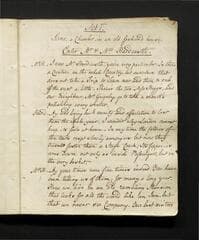 Act I.
Scene, a Chamber in an old fashioned house.
Enter Mr & Mrs Hardcastle.
Mrs H. I vow Mr Hardcastle, you're very particular. Is there
a Creature in the whole Country, but ourselves that
does not take a trip to town now and then, to rub
off the rust a little. There's the two Miss Hoggs, and
our Neighbour Mrs Grigsby, go to take a month's
polishing every winter.
Hard. Ay, and bring back vanity and affectation to last
them the whole year. I wonder why London cannot
keep its fools at home. In my time the follies of
the town crept slowly among us, but now they
travel faster than a Stage Coach. Its fopperies
come down, not only as inside Passengers, but in
the very basket.
Mrs H. Ay your times were fine times indeed. You have
been telling us of them, for many a long year.
Here we live in an old rumbling Mansion,
that looks for all the world like an Inn, but
that we never see Company. Our best visitors